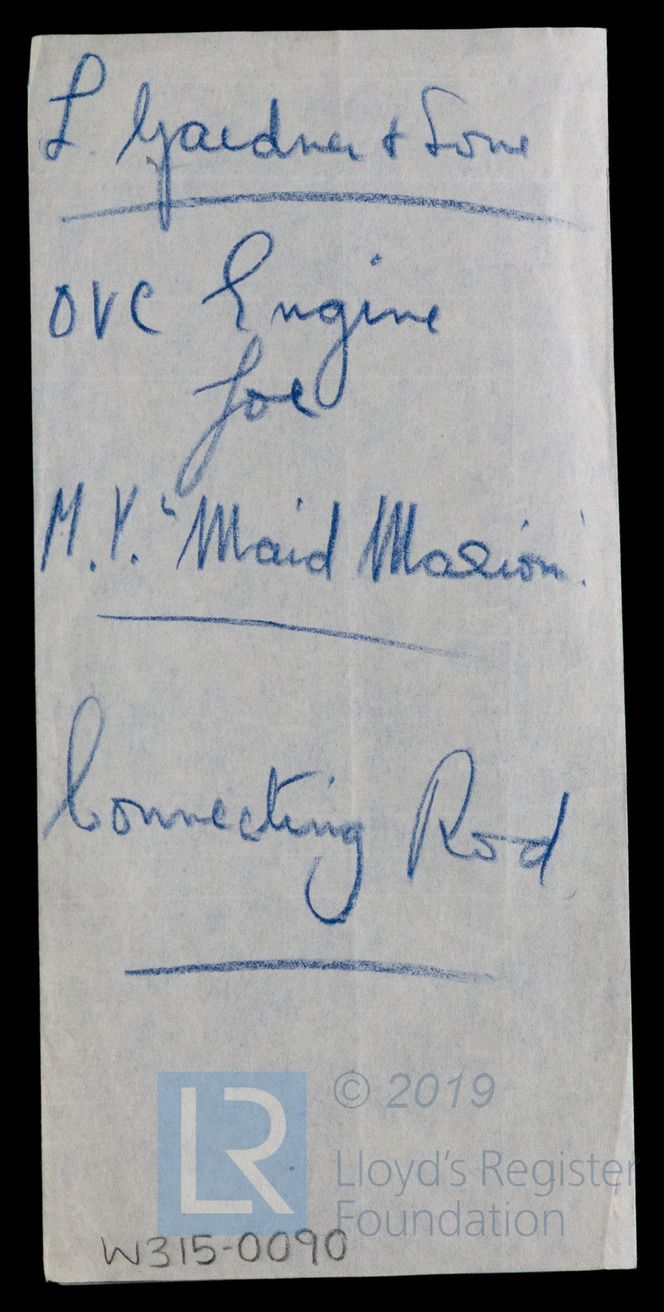 L. Gardner & Sons
OVC Engine
for
M.V. "Maid Marion".
Connecting Rod
LR
© 2019
Lloyd's Register
Foundation
W315-0090